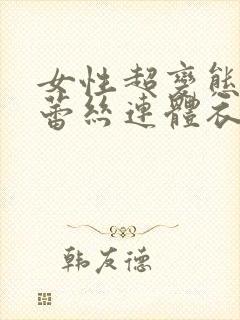 女性超變態
蕾絲連體衣
韩友德